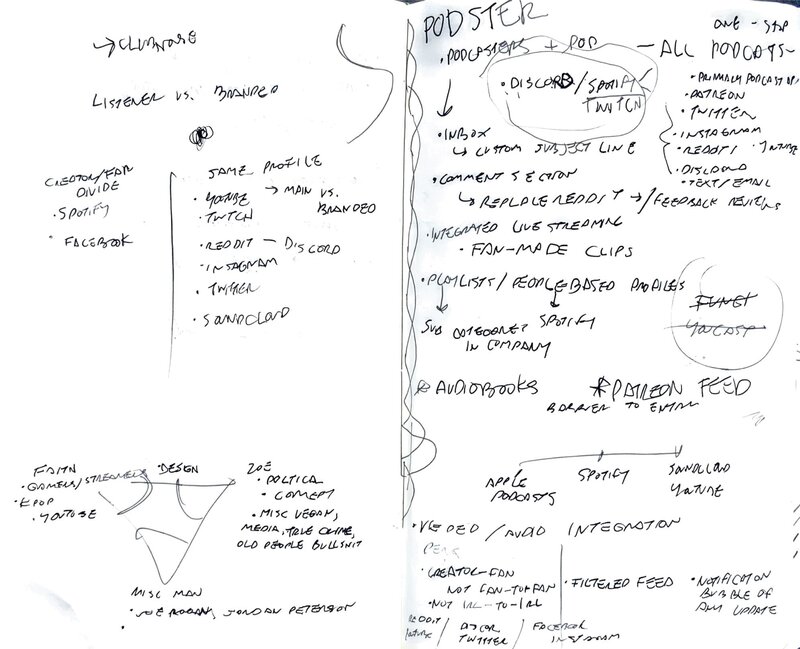 →CLUBHOUSE
LISTENER VS. BRANDED
CREATOR/FAN
DIVIDE
• SPOTIFY
• FACEBOOK
SAME PROFILE
• YOUTUBE → MAIN VS.
BRANDED
• TWITCH
• REDDIT — DISCORD
• INSTAGRAM
• TWITTER
• SOUNDCLOUD
• GAMERS/STREAMERS
• KPOP
• YOUTUBE
• DESIGN
ZOE
• POLITICAL
• COMEDY
• MISC VEGAN,
MEDIA, TRUE CRIME,
OLD PEOPLE BULLSHIT
MISC MAN
• JOE ROGAN, JORDAN PETERSON
PODSTER
ONE-STOP
• PODCASTERS + POD — ALL PODCASTS
• DISCORD/SPOTIFY
TWITCH
• PATREON
• TWITTER
• INSTAGRAM
• REDDIT/
• DISCORD
• TEXT/EMAIL
• INBOX
↳ CUSTOM SUBJECT LINE
• COMMENT SECTION
↳ REPLACE REDDIT → /FEEDBACK REVIEWS
• INTEGRATED LIVE STREAMING
• FAN-MADE CLIPS
• PLAYLISTS/PEOPLE-BASED PROFILES
SUB CATEGORIES
IN COMPANY
SPOTIFY
YOUCAST
AUDIOBOOKS
*PATREON FEED
BARRIER TO ENTRY
APPLE
PODCASTS
SPOTIFY
SOUNDCLOUD
YOUTUBE
• VIDEO/AUDIO INTEGRATION
• CREATOR-FAN
NOT FAN-TO-FAN
• NOT IRL-TO-IRL
• FILTERED FEED
• NOTIFICATION
BUBBLE OF
ANY UPDATE
REDDIT
YOUTUBE
/ DISCORD
TWITTER
/ FACEBOOK
INSTAGRAM